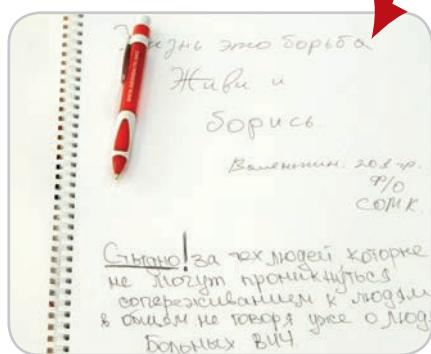 Жизнь это борьба
Живи и
борись.
Валентин. 201 гр.
Ф/О
СОМК.
Стыдно! за тех людей которые
не могут проникнуться
сопереживанием к людям
в общем не говоря уже о люд
больных ВИЧ